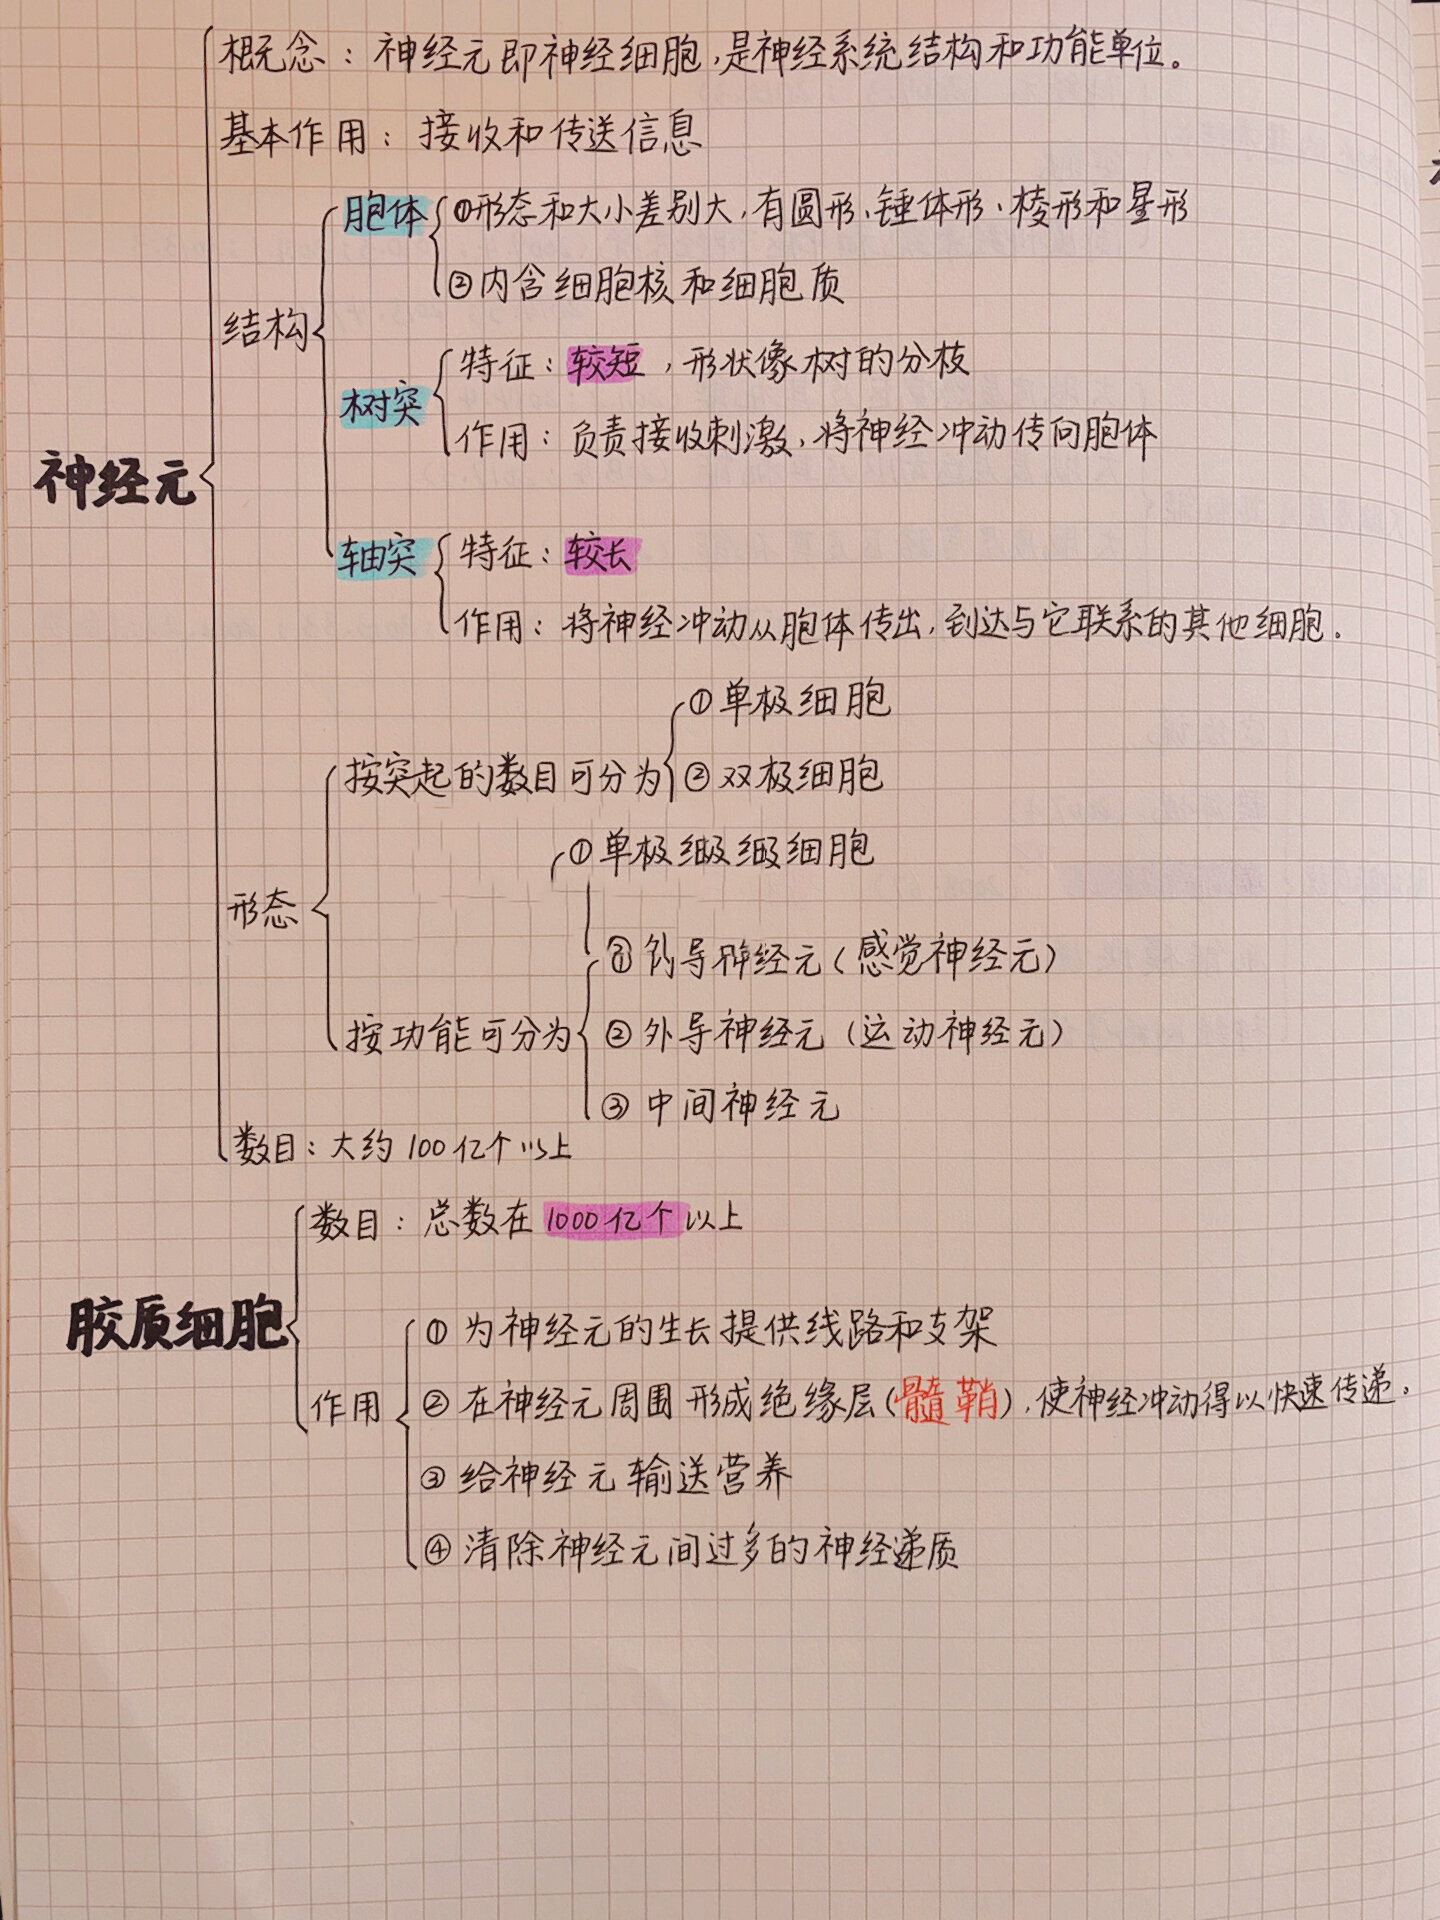 概念：神经元即神经细胞，是神经系统结构和功能单位。
基本作用：接收和传送信息
胞体
①形态和大小差别大，有圆形、锤体形、棱形和星形
②内含细胞核和细胞质
结构
树突
特征：较短，形状像树的分枝
作用：负责接收刺激，将神经冲动传向胞体
神经元
轴突
特征：较长
作用：将神经冲动从胞体传出，到达与它联系的其他细胞.
形态
按突起的数目可分为
①单极细胞
②双极细胞
①单极细胞
按功能可分为
导神经元（感觉神经元）
②外导神经元（运动神经元）
③中间神经元
数目：大约100亿个以上
胶质细胞
数目：总数在1000亿个以上
作用
①为神经元的生长提供线路和支架
②在神经元周围形成绝缘层（髓鞘），使神经冲动得以快速传递。
③给神经元输送营养
④清除神经元间过多的神经递质